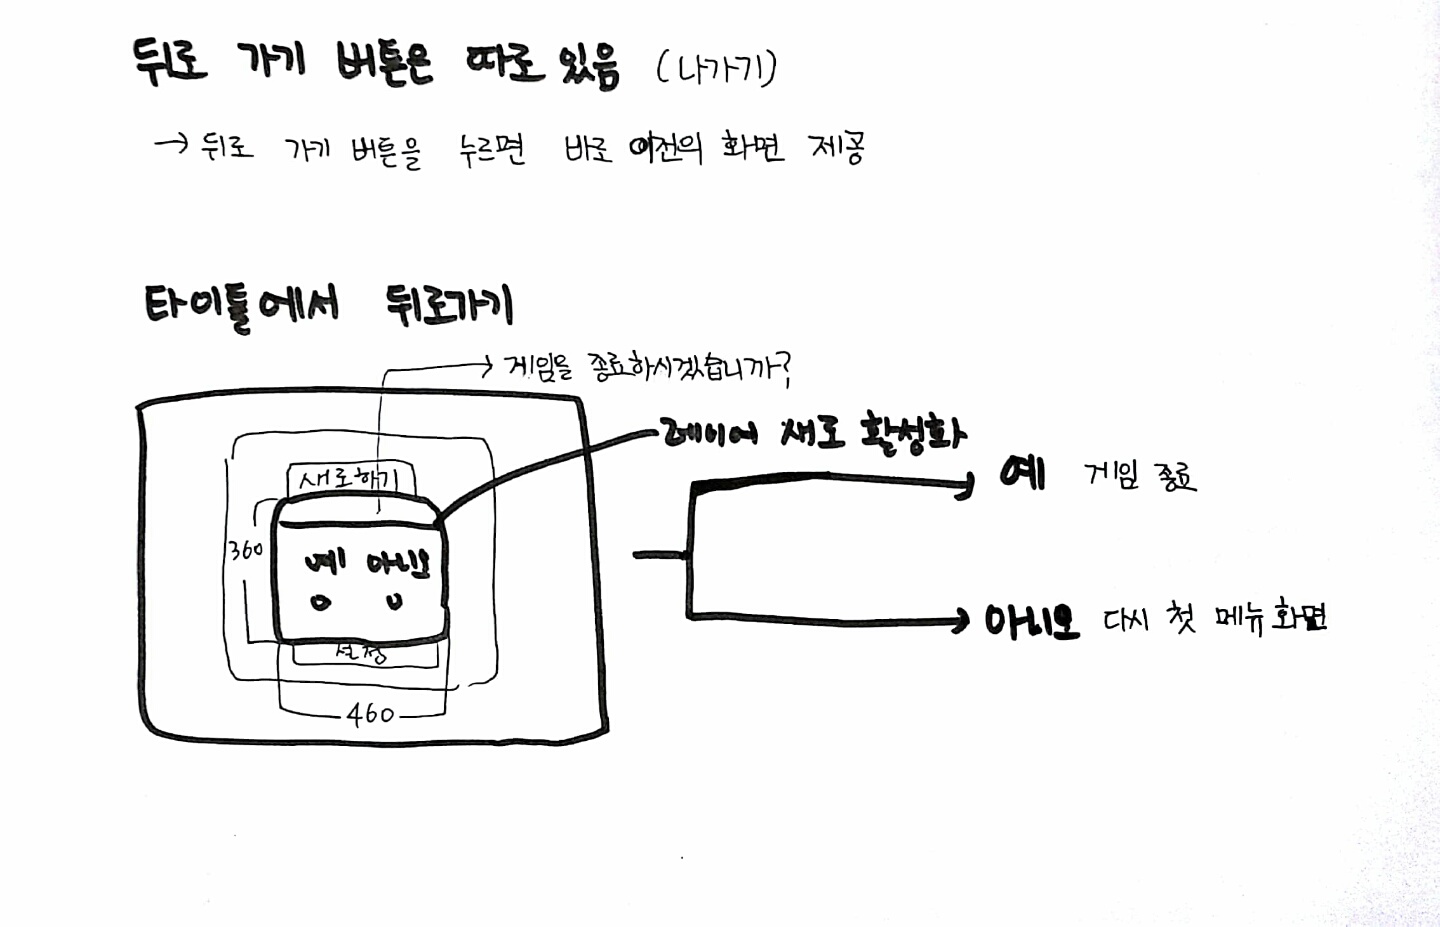 뒤로 가기 버튼은 따로 있음 (나가기)
→ 뒤로 가기 버튼을 누르면 바로 이전의 화면 제공
타이틀에서 뒤로가기
게임을 종료하시겠습니까?
레이어 새로 활성화
새로하기
예 게임 종료
360
예 아니오
아니오 다시 첫 메뉴 화면
설정
460